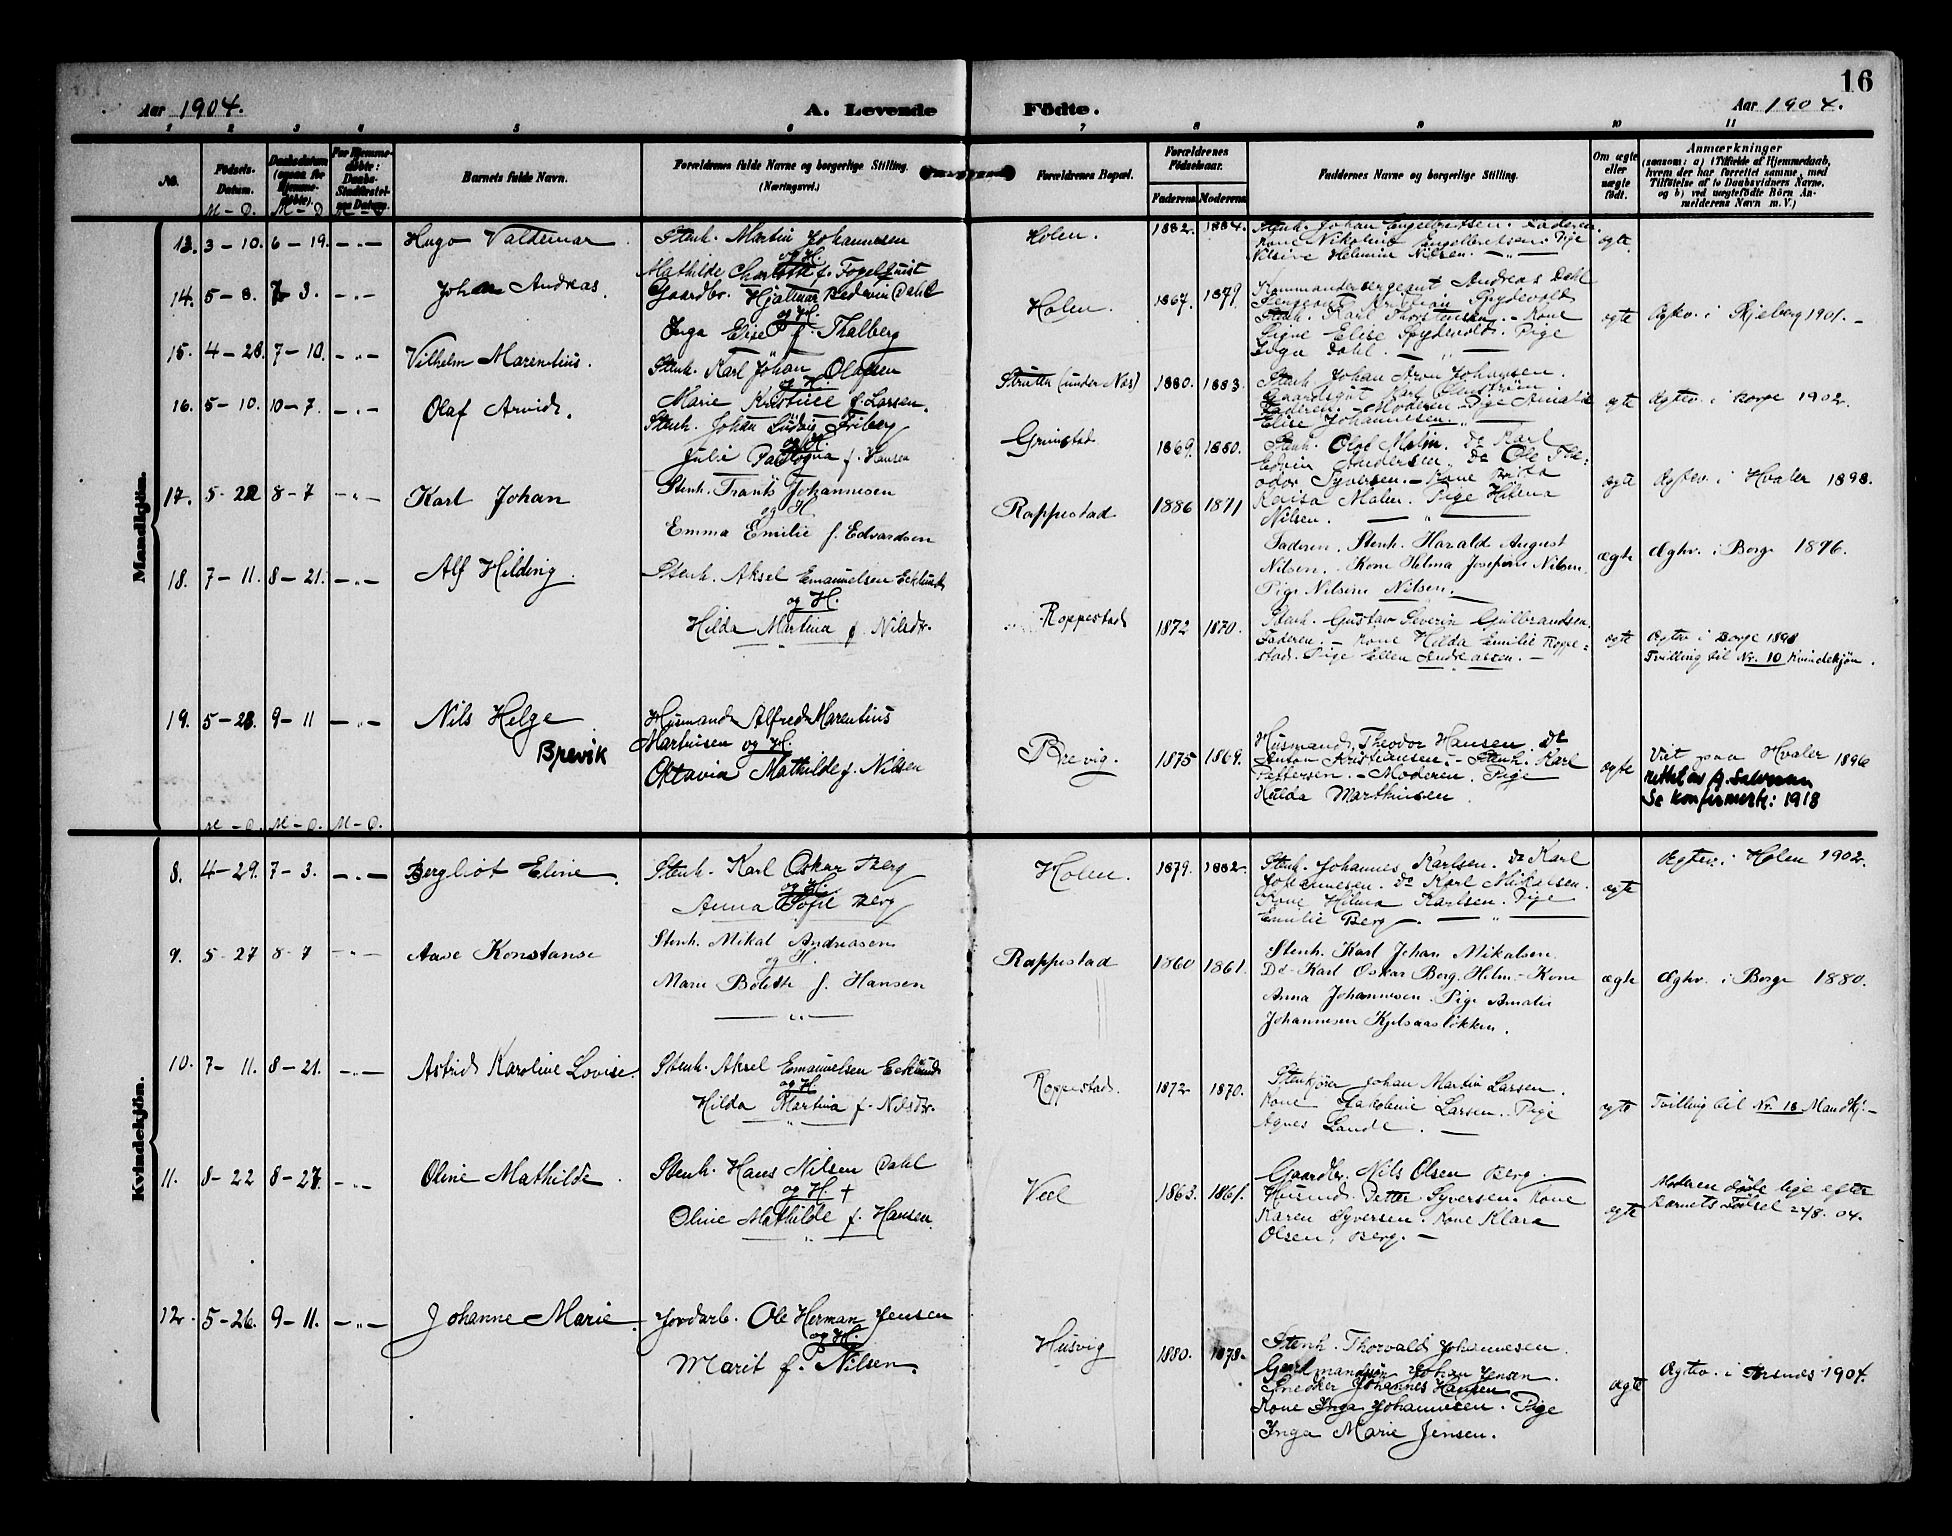 16
Aar 1904.
A. Levende
Födte.
Aar 1904.
1 2 3 4 5 6 7 8 9 10 11
No.
Födsels-Datum.
M – D.
Daabsdatum (ogsaa for Hjemme-döbte).
M – D
For Hjemme-döbte:
M – D
Barnets fulde Navn.
Forældrenes fulde Navne og borgerlige Stilling.
(Næringsvei.)
Forældrenes Bopæl.
Forældrenes Födselsaar.
Faderens Moderens
Faddernes Navne og borgerlige Stilling.
Om ægte eller uægte födt.
Anmærkninger
(saasom: a) i Tilfælde af Hjemmedaab,
hvem der har forrettet samme, med
Tilföielse af to Daabsvidners Navne,
og b) ved uægtefödte Börn An-
melderens Navn m. V.)
Mandkjön.
13. 3–10. 6–19. –"–
Hugo Valdemar
Stenh. Martin Johannesen
og H.
Mathilde Charlotte f. Fogelquist
Holen.
1882. 1884.
Stenh. Johan Engelbretsen. Faderen.
Kone Nikoline Engelbretsen. Pige
Nilsine Helmine Nilsen.
ægte
14. 5–8. 7–3. –"–
Johan Andreas.
Gaardbr. Hjalmar Dahl
og H.
Inga Elise f. Thalberg
Holen.
1867. 1879.
Kommandersergeant Andreas Dahl
Sergeant Kristian Spydevold
Stenh. Karl Thorstensen. – Kone
Signe Elise Spydevold. Pige
Inga Dahl.
ægte
Ægtev. i Skjeberg 1901. –
15. 4–28. 7–10. –"–
Vilhelm Marentius.
Stenh. Karl Johan Olafsen
og H.
Marie Kristine f. Larsen.
Strutta (under Nas)
1880. 1883.
Stenh. Johan Aron Johansen.
Faderen. – Moderen. Pige Amalia
Elise Johannesen.
ægte
Ægtev. i Borge 1902.
16. 5–10. 10–7. –"–
Olaf Arvid.
Stenh. Johan Ludvig Friberg
og H.
Julie f. Hansen
Grimstad
1869. 1880.
Stenh. Olof Malin. Do Karl
Edvin Andersen. Do Ole The=
odor Syversen. – Kone Brita
Malin. Pige Helena
Nilsen.
ægte
Ægtev. i Hvaler 1898.
17. 5–22 8–7 –"–
Karl Johan
Stenh. Frants Johannesen
og H
Emma Emilie f. Edvardsen
Roppestad
1886 1871
Faderen. Stenh. Harald August
Nilsen. Kone Helma Josefine Nilsen.
Pige Nilsine Nilsen.
ægte
Ægtev. i Borge 1896.
18. 7–11. 8–21. –"–
Alf Hilding.
Stenh. Aksel Emanuelsen Ecklund
og H.
Hilda Martina f. Nilsdr.
Roppestad
1872 1870.
Stenh. Gustav Severin Gulbrandsen.
Faderen. – Kone Hilda Emilie Roppe=
stad. Pige Ellen Andreassen. –
ægte
Ægtev. i Borge 1898
Tvilling til Nr. 10 Kvindekjön.
19. 5–28. 9–11 –"–
Nils Helge
Brevik
Husmand Alfred Marentius
Martinsen og H.
Oktavia Mathilde f. Nilsen
Brevig.
1875 1869.
Husmand Theodor Hansen. Do
Anton Kristiansen. – Stenh. Karl
Pettersen. – Moderen. Pige
Hulda Marthinsen.
ægte
Viet paa Hvaler 1896
Se konfirmerte: 1918
M – D. M – D. M – D.
Kvindekjön.
8. 4–29. 7–3. –"–
Bergliot Eline.
Stenh. Karl Oskar Berg
og H.
Anna Sofie Berg
Holen.
1879. 1882.
Stenh. Johannes Karlsen. Do Karl
Johannesen. Do Karl Mikalsen.
Kone Helma Karlsen. Pige
Emilie Berg
ægte
Ægtev. i Holen 1902.
9. 5–27 8–7 –"–
Aase Konstanse
Stenh. Mikal Andreasen
og H.
Marie Bolette f. Hansen
Roppestad
1860 1861.
Stenh. Karl Johan Mikalsen.
Do Karl Oskar Berg, Holm. – Kone
Anna Johannesen. Pige Amalie
Johannesen Kjelsaaslökken.
ægte
Ægtev. i Borge 1880.
10. 7–11. 8–21. –"–
Astrid Karoline Lovise.
Stenh. Aksel Emanuelsen Ecklund
og H
Hilda Martina f. Nilsdr.
Roppestad.
1872 1870.
Stenkjörer Johan Martin Larsen.
Kone Jakobine Larsen. Pige
Agnes Lande.
ægte
Tvilling til Nr. 18 Mandkj. –
11. 8–22 8–27. –"–
Oline Mathilde.
Stenh. Hans Nilsen Dahl
og H +
Oline Mathilde f. Hansen.
Veel
1863. 1861.
Gaardbr. Nils Olsen Berg.
Husmd. Petter Syversen. Kone
Karen Syversen. Kone Klara
Olsen, Berg. –
ægte
Moderen döde lige efter
Barnets Födsel 22/8. 04.
12. 5–26. 9–11. –"–
Johanne Marie.
Jordarb. Ole Herman Jensen
og H.
Marit f. Nilsen.
Husvig
1880. 1878.
Stenh. Thorvald Johannesen.
Gaardmandssön Johan Jensen.
Snedker Johannes Hansen
Kone Inga Johannesen. Pige
Inga Marie Jensen.
ægte
Ægtev. i Onsö 1904.